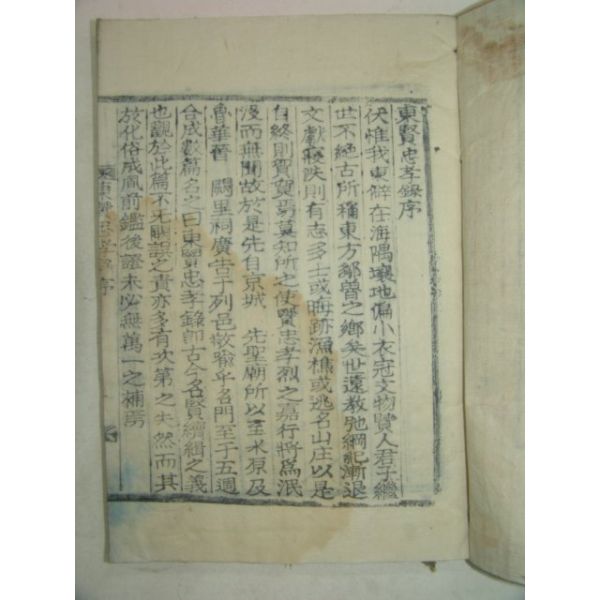 東賢忠孝錄序
伏惟我東僻在海隅壤地偏小衣冠文物賢人君子繼
世不絶古所稱東方鄒魯之鄕矣世遠敎弛綱紀漸退
文獻寢佚則有志多士或晦跡漁樵或逃名山庄以是
自終則賀賀焉莫知所之使賢忠孝烈之嘉行將爲泯
沒而無聞故於是先自京城 先聖廟所以至水原及
魯華晉 闕里祠廣告于列邑敬諭年名門至于五週
合成數篇名之曰東賢忠孝錄卽古今名賢續緝之義
也觀於此篇不无聞誤之責亦多有次第之失然而其
於化俗成風前鑑後證未必無萬一之補焉
東賢忠孝錄序